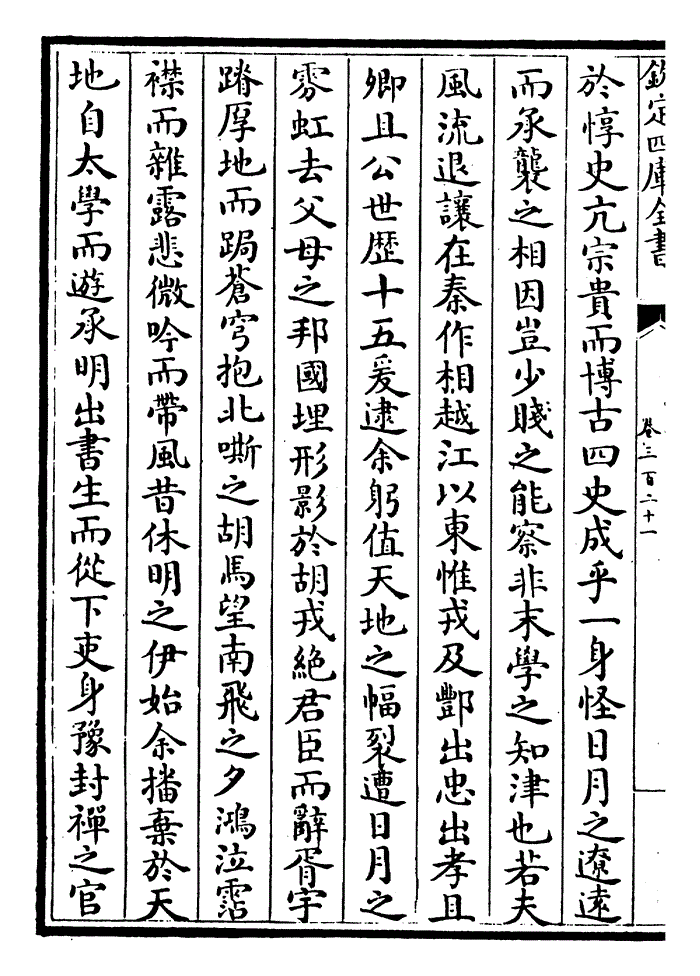 欽定四庫全書
卷三百二十一
於惇史亢宗貴而博古四史成乎一身怪日月之遼遠
而承襲之相因豈少賤之能察非末學之知津也若夫
風流退讓在秦作相越江以東惟戎及酆出忠出孝且
卿且公世歴十五爰逮余躬值天地之幅裂遭日月之
雰虹去父母之邦國埋形影於胡戎絶君臣而辭胥宇
蹐厚地而跼蒼穹抱北嘶之胡馬望南飛之夕鴻泣霑
襟而雜露悲微吟而帶風昔休明之伊始余播棄於天
地自太學而遊承明出書生而從下吏身豫封禪之官